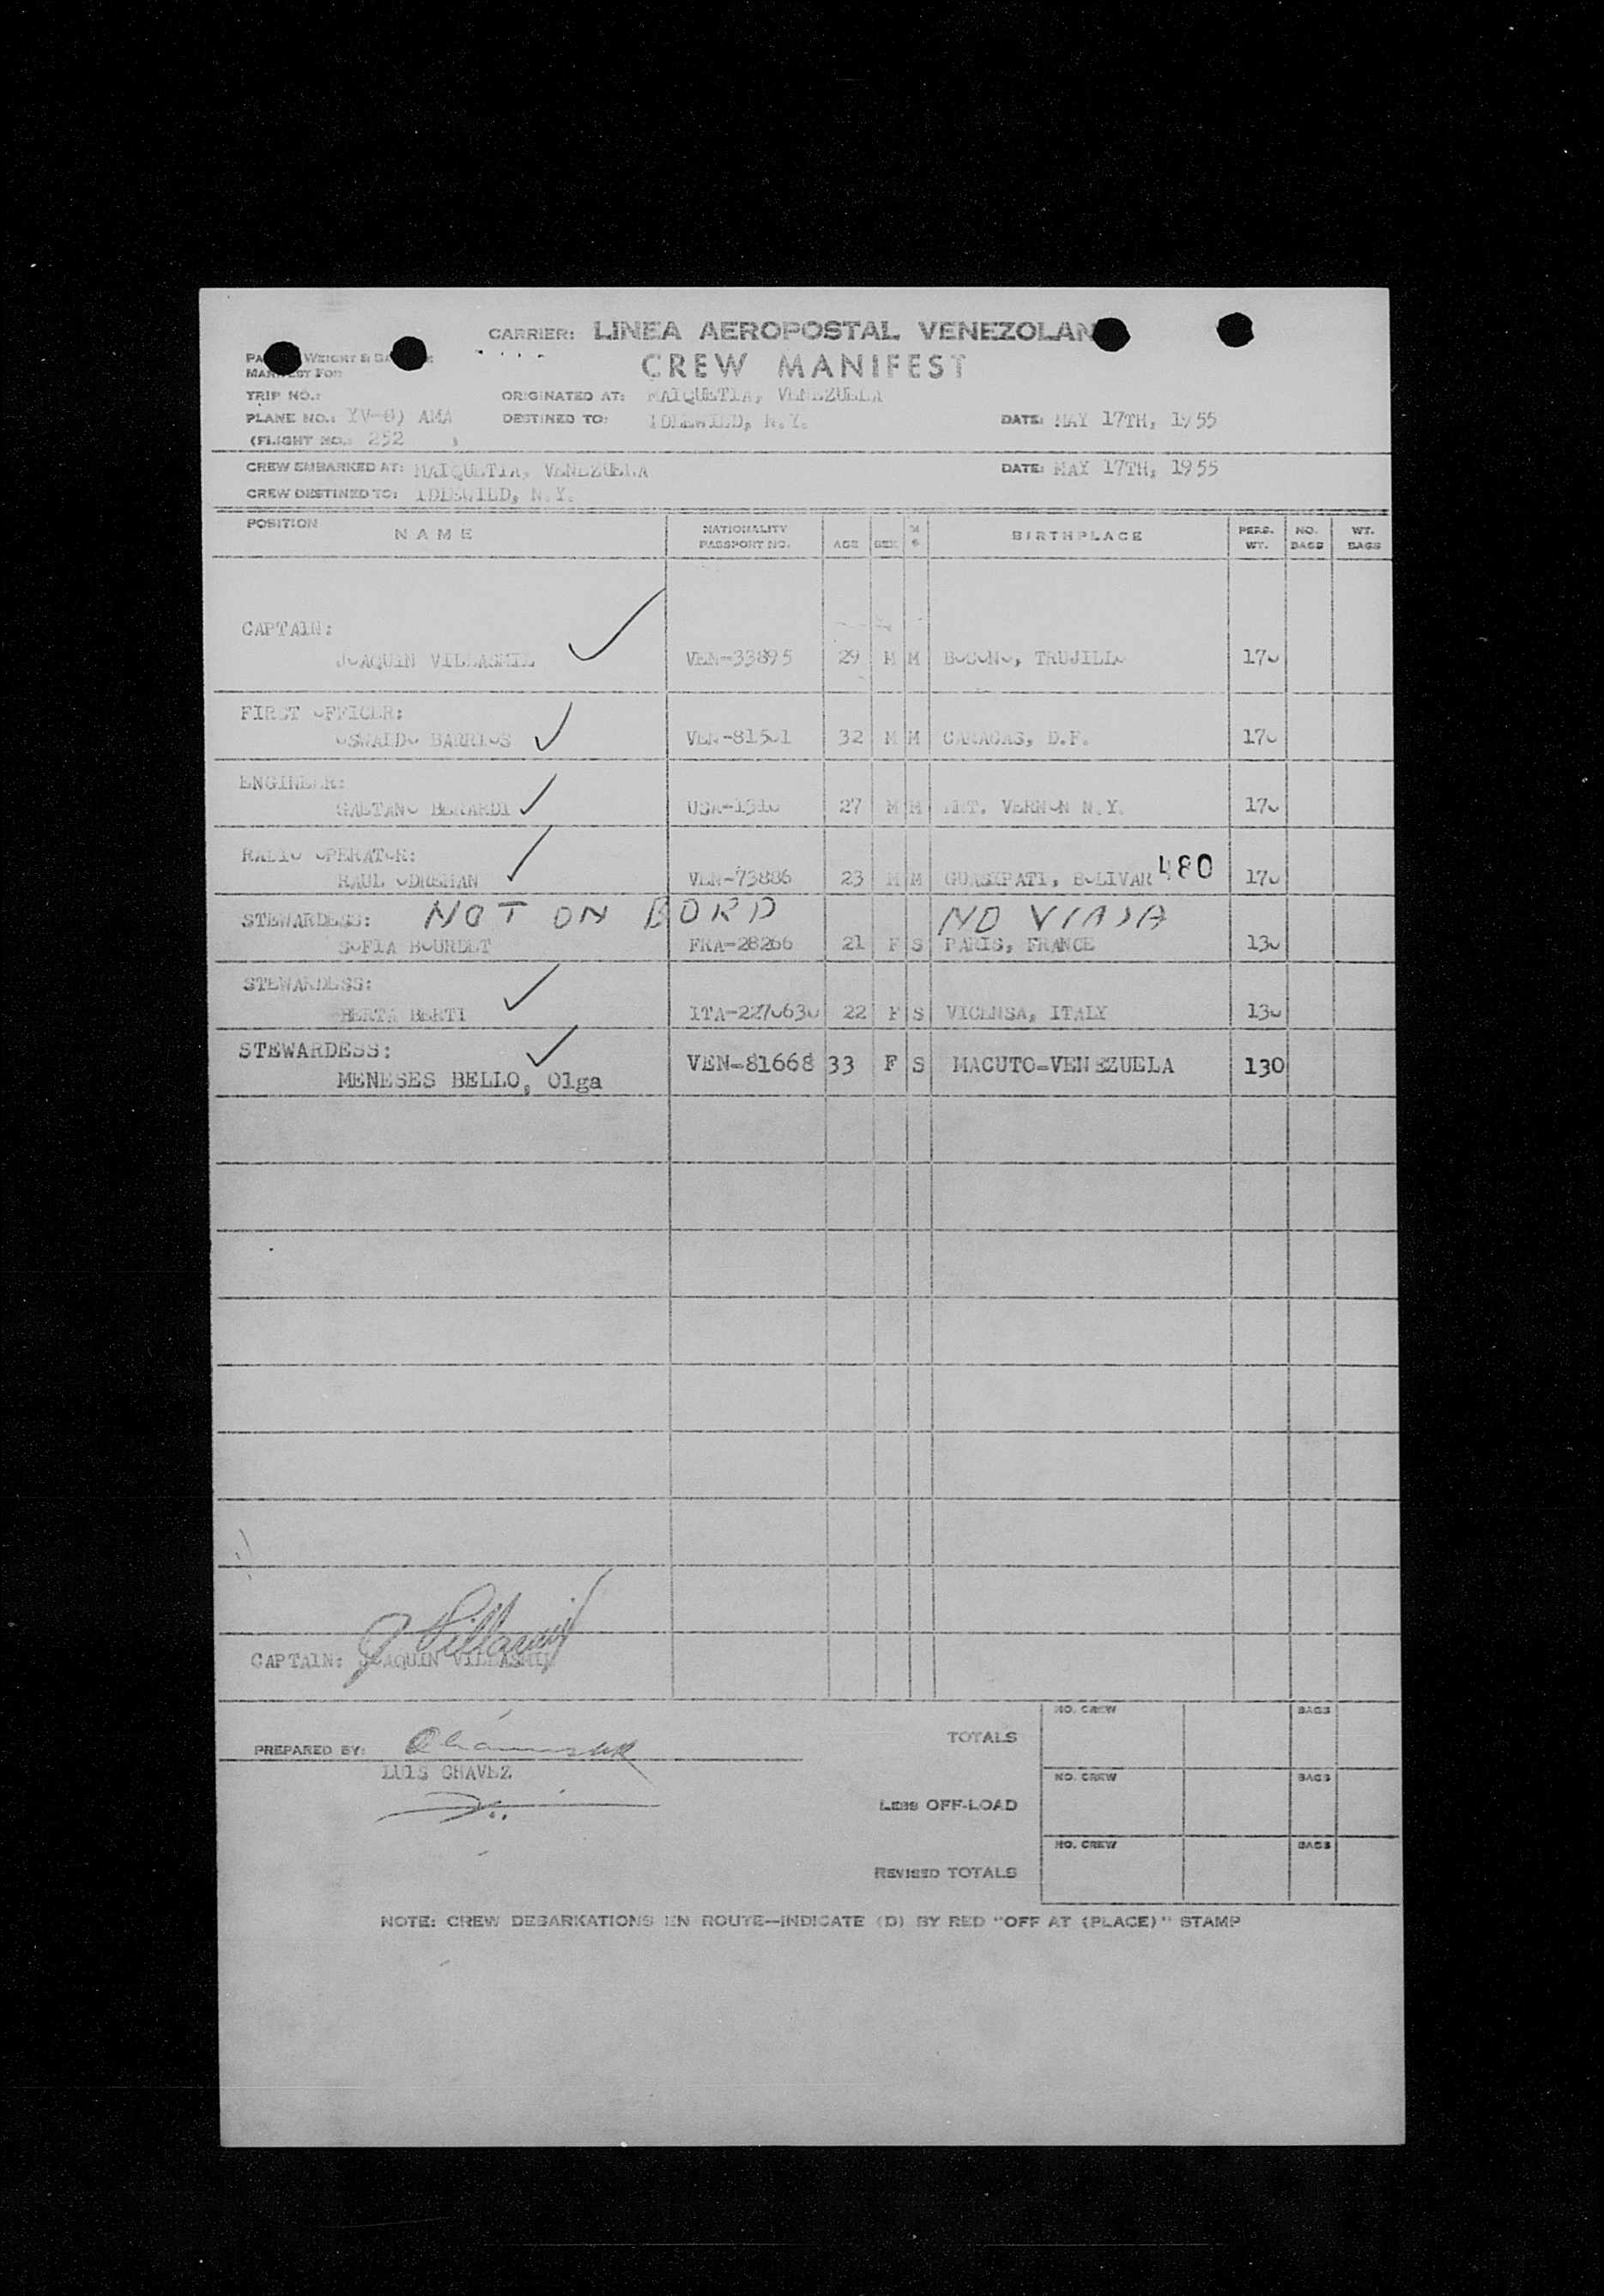 CARRIER: LINEA AEROPOSTAL VENEZOLAN
WEIGHT &
CREW MANIFEST
FOR:
TRIP NO.: ORIGINATED AT: MAIQUETIA, VENEZUELA
PLANE NO.: AMA DESTINED TO: IDLEWILD, N.Y. DATE: MAY 17TH, 1955
(FLIGHT NO.: 252 )
CREW EMBARKED AT: MAIQUETIA, VENEZUELA DATE: MAY 17TH, 1955
CREW DESTINED TO: IDLEWILD, N.Y.
POSITION NAME NATIONALITY PASSPORT NO. AGE SEX BIRTHPLACE PERS. WT. NO. BAGS WT. BAGS
CAPTAIN:
JOAQUIN VILLASMIL VEN-33895 29 M M BOCONO, TRUJILLO 170
FIRST OFFICER:
OSWALDO BARRIOS VEN-81501 32 M M CARACAS, D.F. 170
ENGINEER:
GAETANO BERARDI USA-1310 27 M M MT. VERNON N.Y. 170
RADIO OPERATOR:
RAUL ODREMAN VEN-73886 23 M M GUASIPATI, BOLIVAR 480 170
STEWARDESS: NOT ON BORD NO VIAJA
SOFIA BOURDET FRA-28266 21 F S PARIS, FRANCE 130
STEWARDESS:
BERTA BERTI ITA-2270630 22 F S VICENSA, ITALY 130
STEWARDESS:
MENESES BELLO, Olga VEN-81668 33 F S MACUTO-VENEZUELA 130
J. Villasmil
CAPTAIN: JOAQUIN VILLASMIL
PREPARED BY:
LUIS CHAVEZ
TOTALS NO. CREW BAGS
LESS OFF-LOAD NO. CREW BAGS
REVISED TOTALS NO. CREW BAGS
NOTE: CREW DEBARKATIONS EN ROUTE—INDICATE (D) BY RED "OFF AT (PLACE)" STAMP